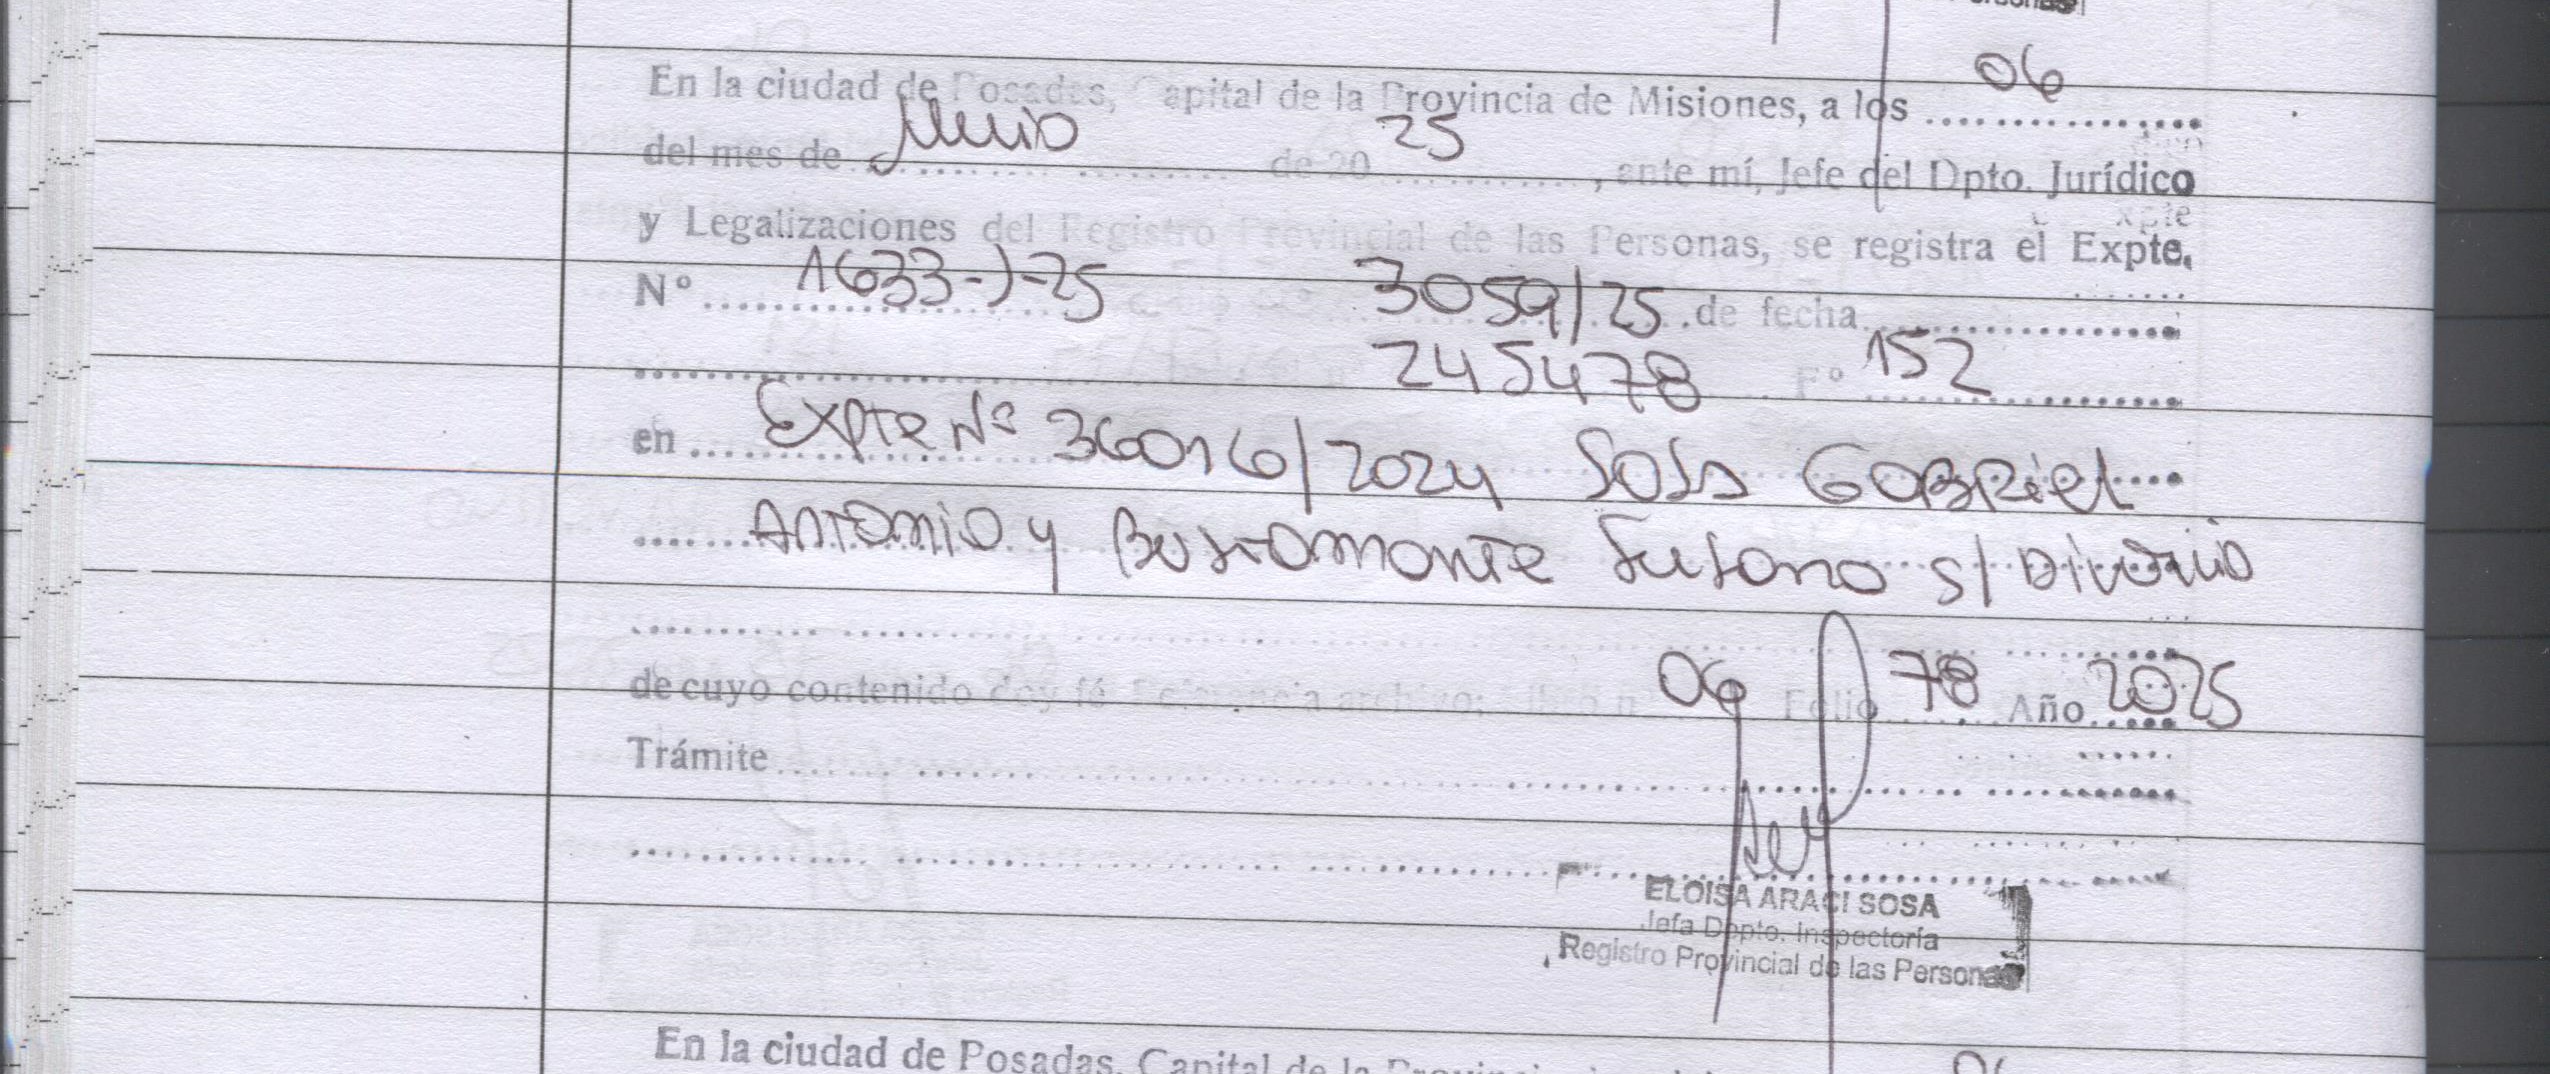 En la ciudad de Posadas, Capital de la Provincia de Misiones, a los 06
del mes de Junio de 20 25, ante mí, Jefe del Dpto. Jurídico
y Legalizaciones del Registro Provincial de las Personas, se registra el Expte.
Nº 1633-J-25 3059/25 de fecha
245478 Fº 152
en Expte Nº 36016/2024 Sosa Gabriel
Antonio y Bustamante Susana s/ Divorcio
de cuyo contenido doy fé Referencia archivo: libro n 06 Folio 78 Año 2025
Trámite
ELOISA ARACI SOSA
Jefa Dpto. Inspectoría
Registro Provincial de las Personas
En la ciudad de Posadas, Capital de la Provincia 06